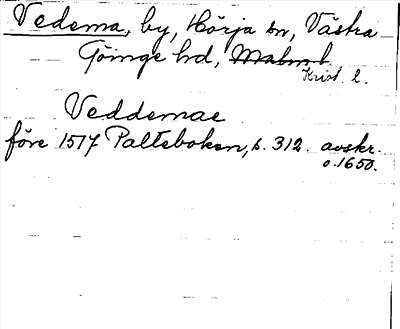 Vedema, by, Hörja sn, Västra
Göinge hd, Malm. l.
Krist. l.
Veddemae
före 1517 Palteboken, s. 312. avskr.
o. 1650.